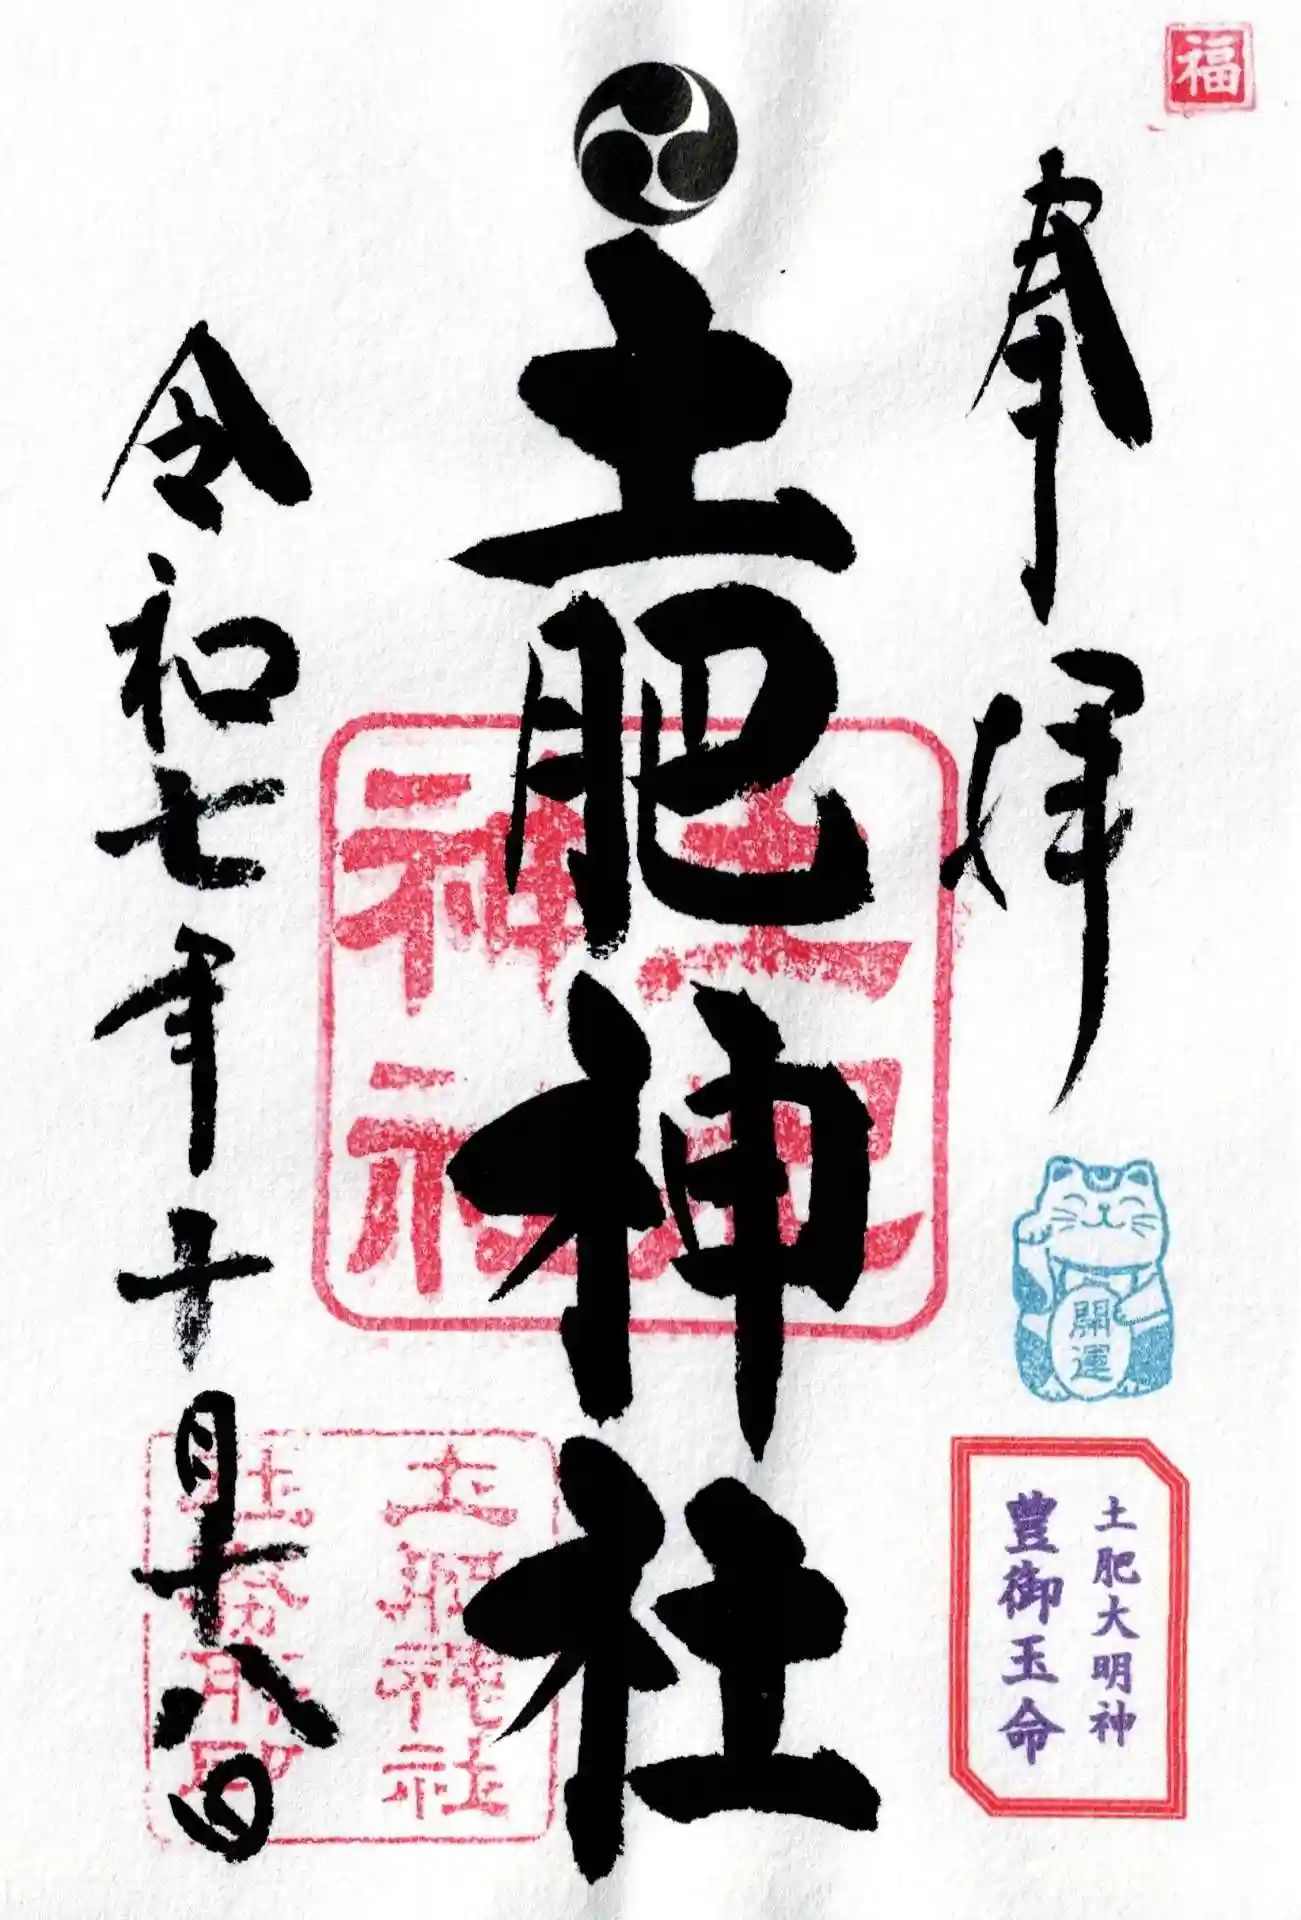 福
奉拝
開運
土肥大明神
豊御玉命
土肥神社
土肥
神社
土肥神社
社務所印
令和七年十月十八日